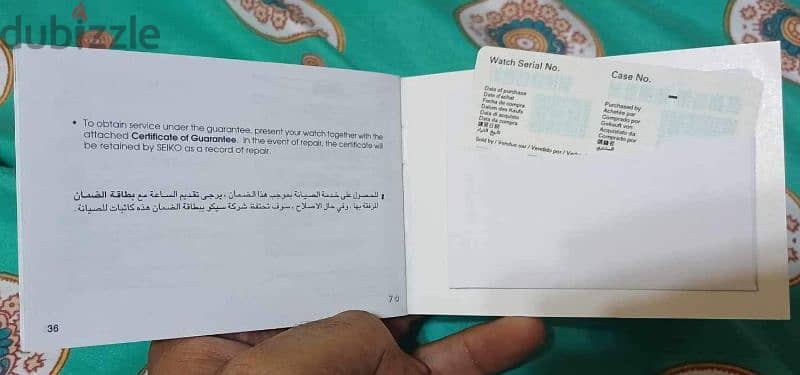 dubizzle
• To obtain service under the guarantee, present your watch together with the
attached Certificate of Guarantee. In the event of repair, the certificate will
be retained by SEIKO as a record of repair.
للحصول على خدمة الصيانة بموجب هذا الضمان ، يرجى تقديم الساعة مع بطاقة الضمان
المرفقة بها . وفي حال الاصلاح ، سوف تحتفظ شركة سيكو ببطاقة الضمان هذه كاثبات للصيانة .
70
36
Watch Serial No.
Case No.
Date of purchase
Date d'achat
Fecha de compra
Datum des Kaufs
Data di acquisto
Data da compra
購買日期
تاريخ الشراء
Purchased by
Achetée par
Comprado por
Gekauft von
Acquistato da
Comprado por
購錶者
المشتري
Sold by / Vendue par / Vendido por /